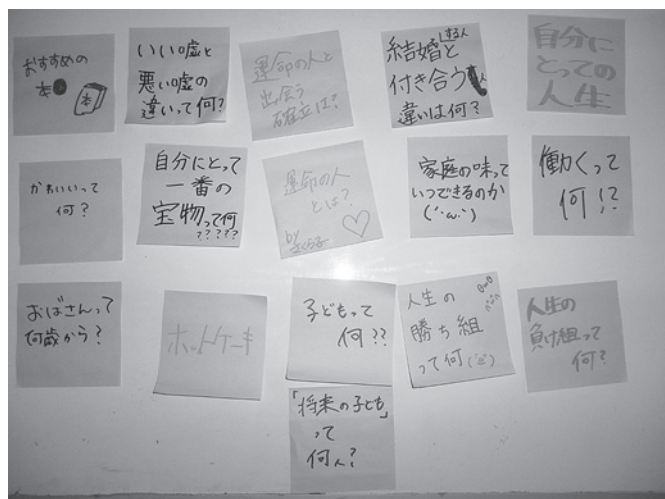 おすすめの
本
本
いい嘘と
悪い嘘の
違いって何?
運命の人と
出会う
確立は?
結婚する人と
付き合う人
違いは何?
自分に
とっての
人生
かわいいって
何?
自分にとって
一番の
宝物って何
?????
運命の人
とは?
by
さくら子
家庭の味って
いつできるのか
(´･ω･`)
働くって
何!?
おばさんって
何歳から?
ホットケーキ
子どもって
何??
人生の
勝ち組
って何
人生の
負け組って
何?
「将来の子ども」
って
何人?